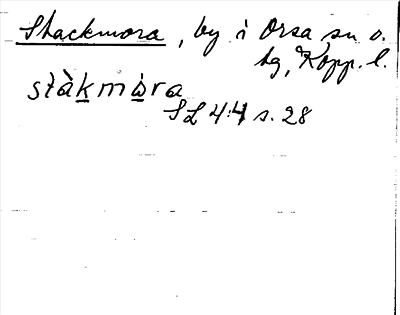 Stackmora, by i Orsa sn o.
hg, Kopp. l.
stàkmòra
SL 4:4 s. 28